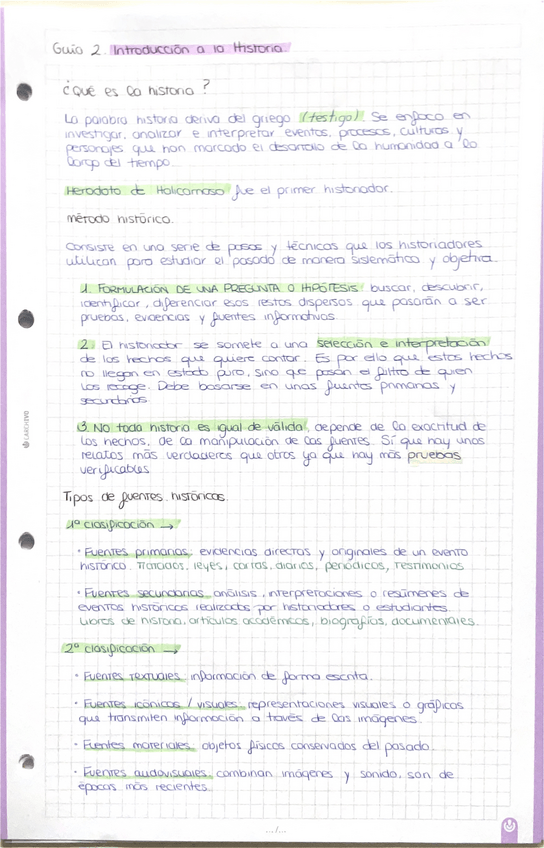 Guía 2. Introducción a la Historia.
¿Qué es la historia?
La palabra historia deriva del griego (testigo). Se enfoca en
investigar, analizar e interpretar eventos, procesos, culturas y
personajes que han marcado el desarrollo de la humanidad a lo
largo del tiempo.
Herodoto de Halicarnaso fue el primer historiador.
método histórico.
Consiste en una serie de pasos y técnicas que los historiadores
utilizan para estudiar el pasado de manera sistemática y objetiva.
1. FORMULACIÓN DE UNA PREGUNTA O HIPÓTESIS: buscar, descubrir,
identificar, diferenciar esos restos dispersos que pasarán a ser
pruebas, evidencias y fuentes informativas.
2. El historiador se somete a una selección e interpretación
de los hechos que quiere contar. Es por ello que estos hechos
no llegan en estado puro, sino que pasan el filtro de quien
los recoge. Debe basarse en unas fuentes primarias y
secundarias.
3. No toda historia es igual de válida, depende de la exactitud de
los hechos, de la manipulación de las fuentes. Sí que hay unos
relatos más verdaderos que otros ya que hay más pruebas
verificables.
Tipos de fuentes históricas.
1ª clasificación →
· Fuentes primarias: evidencias directas y originales de un evento
histórico. Tratados, leyes, cartas, diarios, periódicos, testimonios
· Fuentes secundarias: análisis, interpretaciones o resúmenes de
eventos históricos realizados por historiadores o estudiantes.
Libros de historia, artículos académicos, biografías, documentales.
2ª clasificación →
· Fuentes textuales: información de forma escrita.
· Fuentes icónicas / visuales: representaciones visuales o gráficos
que transmiten información a través de las imágenes.
· Fuentes materiales: objetos físicos conservados del pasado.
· Fuentes audiovisuales: combinan imágenes y sonido, son de
épocas más recientes.
.../...